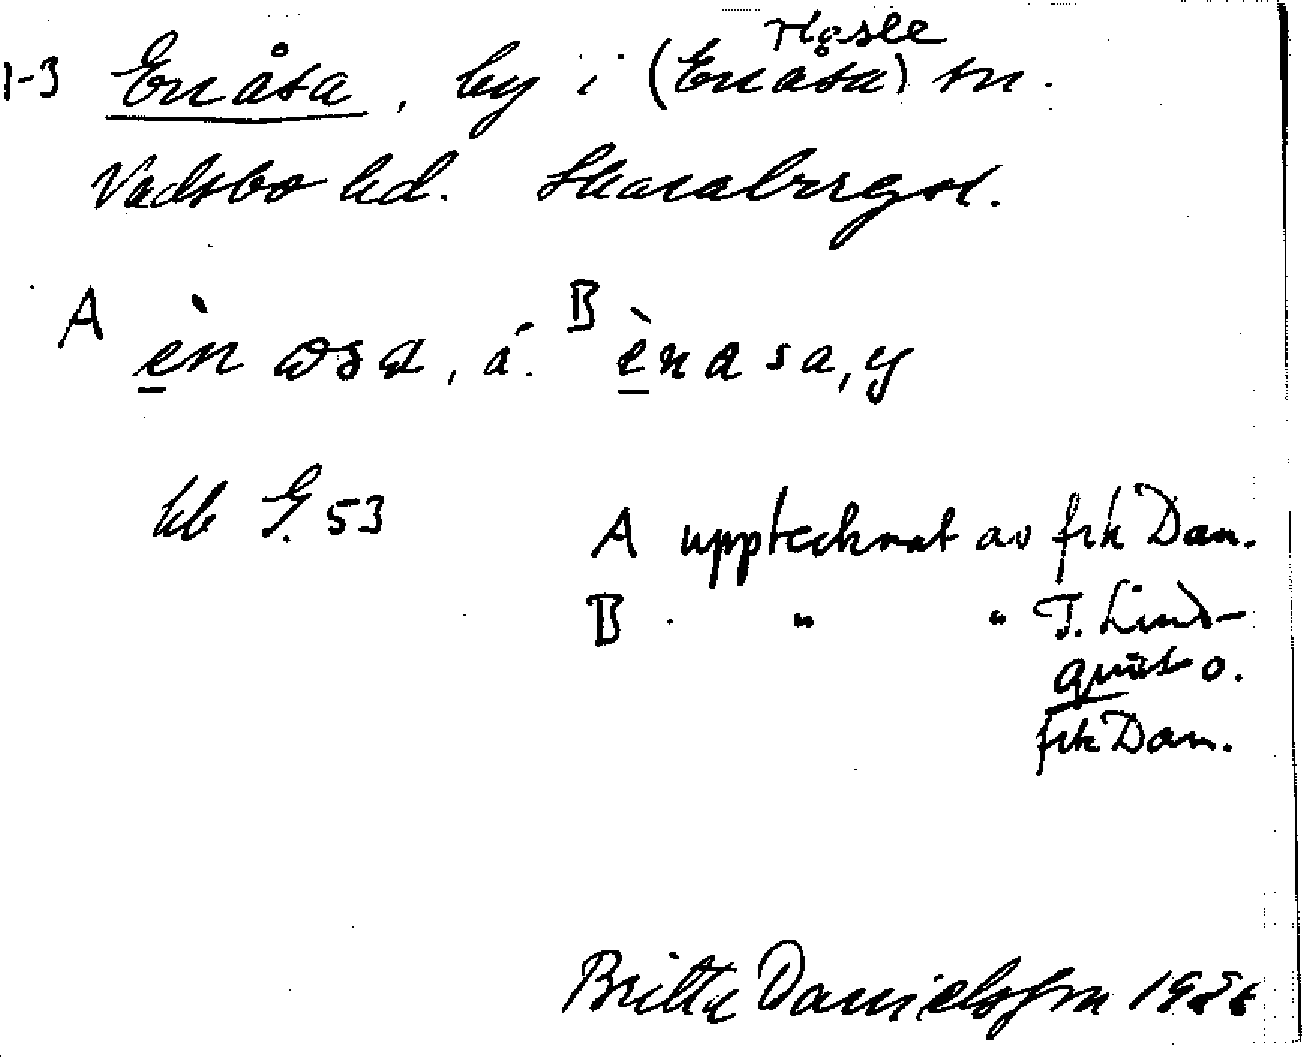 Hassle
1-3 Enåsa, by i (Enåsa) sn.
Vadsbo hd. Skaraborgs l.
A B
èn åsa, á. ènasa, y
kb G. 53
A upptecknat av frk Dan.
B " " T. Lind-
quist o.
frk Dan.
Britta Danielsson